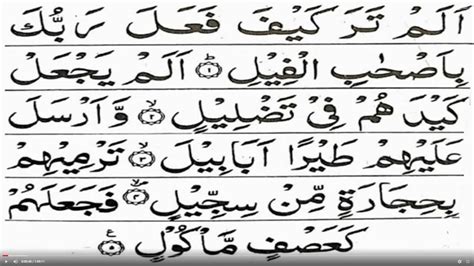 اَلَمْ تَرَ كَيْفَ فَعَلَ رَبُّكَ
بِاَصْحٰبِ الْفِيْلِؕ ۝١ اَلَمْ يَجْعَلْ
كَيْدَ هُمْ فِيْ تَضْلِيْلٍۙ ۝٢ وَّاَرْسَلَ
عَلَيْهِمْ طَيْرًا اَبَابِيْلَۙ ۝٣ تَرْمِيْهِمْ
بِحِجَارَةٍ مِّنْ سِجِّيْلٍۙ ۝٤ فَجَعَلَهُمْ
كَعَصْفٍ مَّاْكُوْلٍ ۝٥ ع